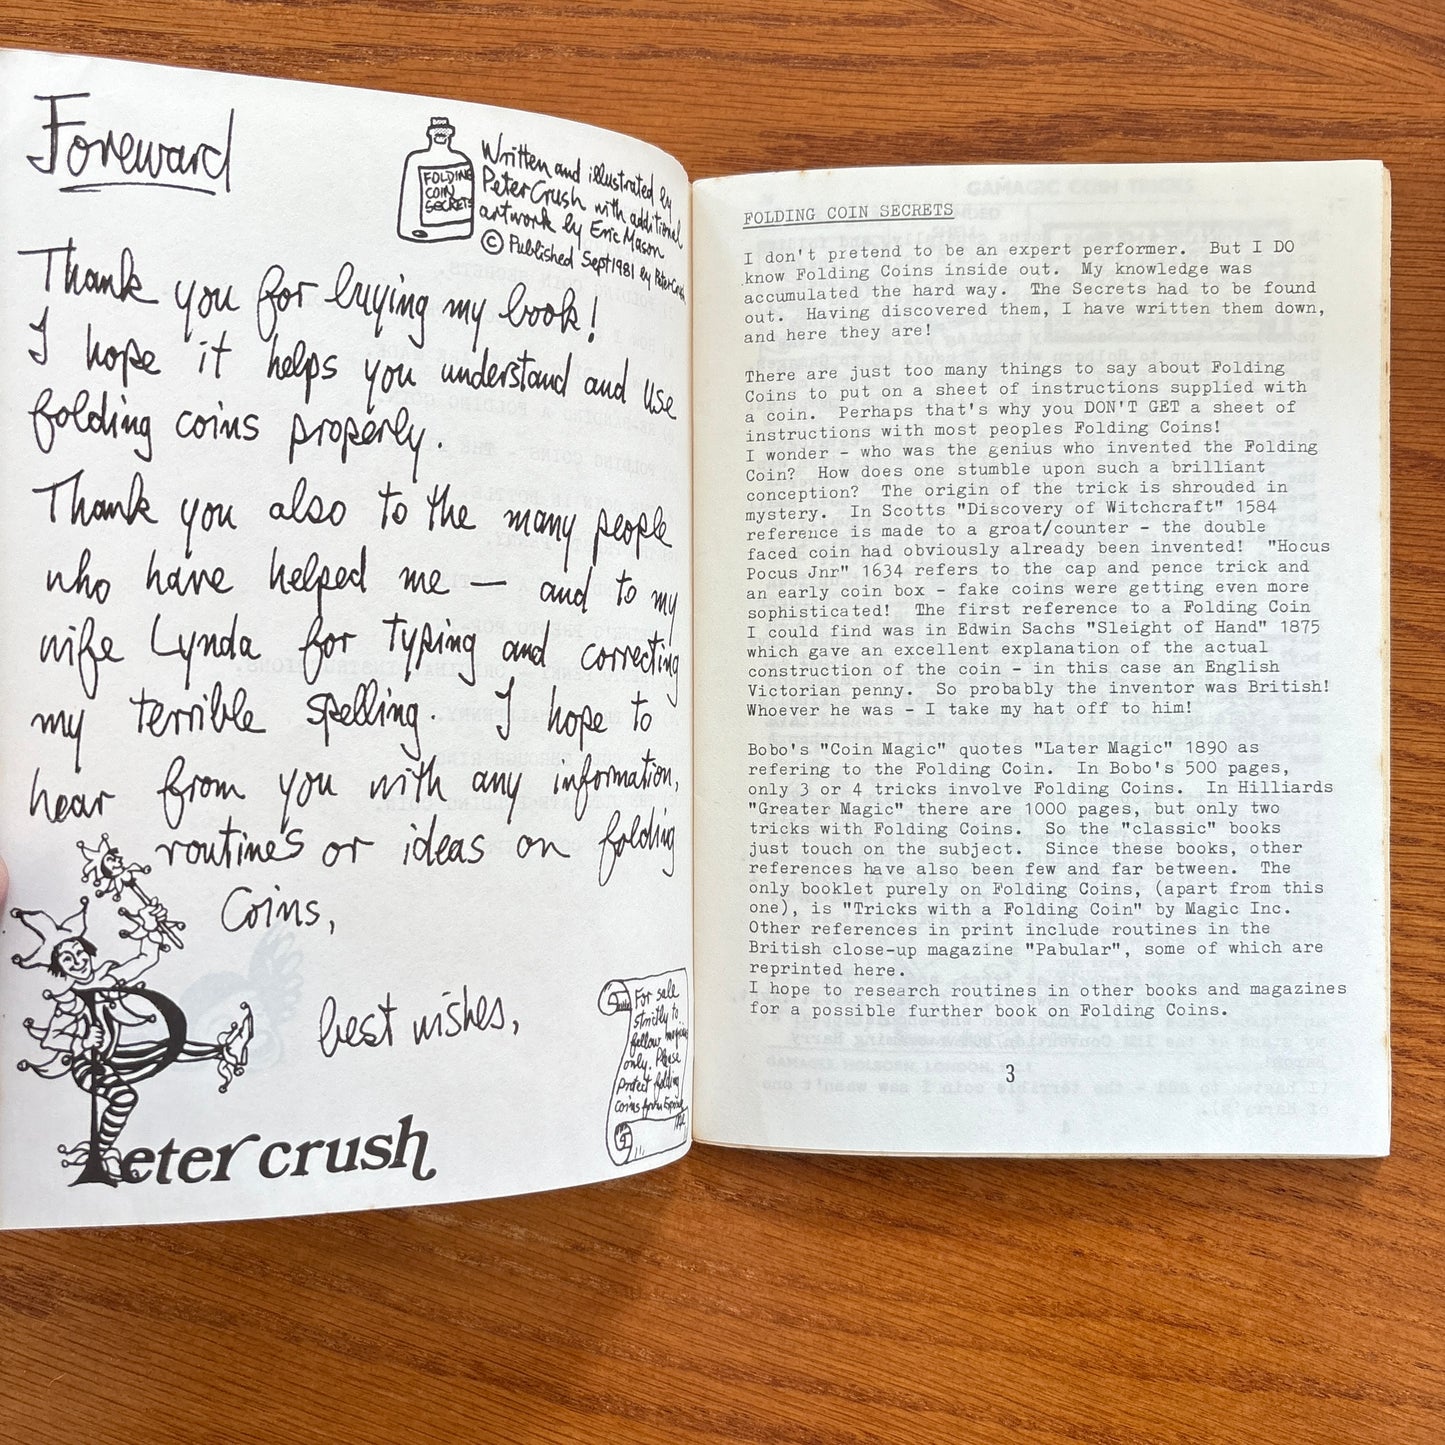 Foreward
FOLDING
COIN
SECRETS
Written and illustrated by
Peter Crush with additional
artwork by Eric Mason
© Published Sept 1981 by Peter Crush
Thank you for buying my book!
I hope it helps you understand and use
folding coins properly.
Thank you also to the many people
who have helped me — and to my
wife Lynda for typing and correcting
my terrible spelling. I hope to
hear from you with any information,
routines or ideas on folding
Coins,
best wishes,
Peter crush
For sale
strictly to
fellow
only. Please
protect folding
coins
FOLDING COIN SECRETS
I don't pretend to be an expert performer. But I DO
know Folding Coins inside out. My knowledge was
accumulated the hard way. The Secrets had to be found
out. Having discovered them, I have written them down,
and here they are!
There are just too many things to say about Folding
Coins to put on a sheet of instructions supplied with
a coin. Perhaps that's why you DON'T GET a sheet of
instructions with most peoples Folding Coins!
I wonder - who was the genius who invented the Folding
Coin? How does one stumble upon such a brilliant
conception? The origin of the trick is shrouded in
mystery. In Scotts "Discovery of Witchcraft" 1584
reference is made to a groat/counter - the double
faced coin had obviously already been invented! "Hocus
Pocus Jnr" 1634 refers to the cap and pence trick and
an early coin box - fake coins were getting even more
sophisticated! The first reference to a Folding Coin
I could find was in Edwin Sachs "Sleight of Hand" 1875
which gave an excellent explanation of the actual
construction of the coin - in this case an English
Victorian penny. So probably the inventor was British!
Whoever he was - I take my hat off to him!
Bobo's "Coin Magic" quotes "Later Magic" 1890 as
refering to the Folding Coin. In Bobo's 500 pages,
only 3 or 4 tricks involve Folding Coins. In Hilliards
"Greater Magic" there are 1000 pages, but only two
tricks with Folding Coins. So the "classic" books
just touch on the subject. Since these books, other
references have also been few and far between. The
only booklet purely on Folding Coins, (apart from this
one), is "Tricks with a Folding Coin" by Magic Inc.
Other references in print include routines in the
British close-up magazine "Pabular", some of which are
reprinted here.
I hope to research routines in other books and magazines
for a possible further book on Folding Coins.
3